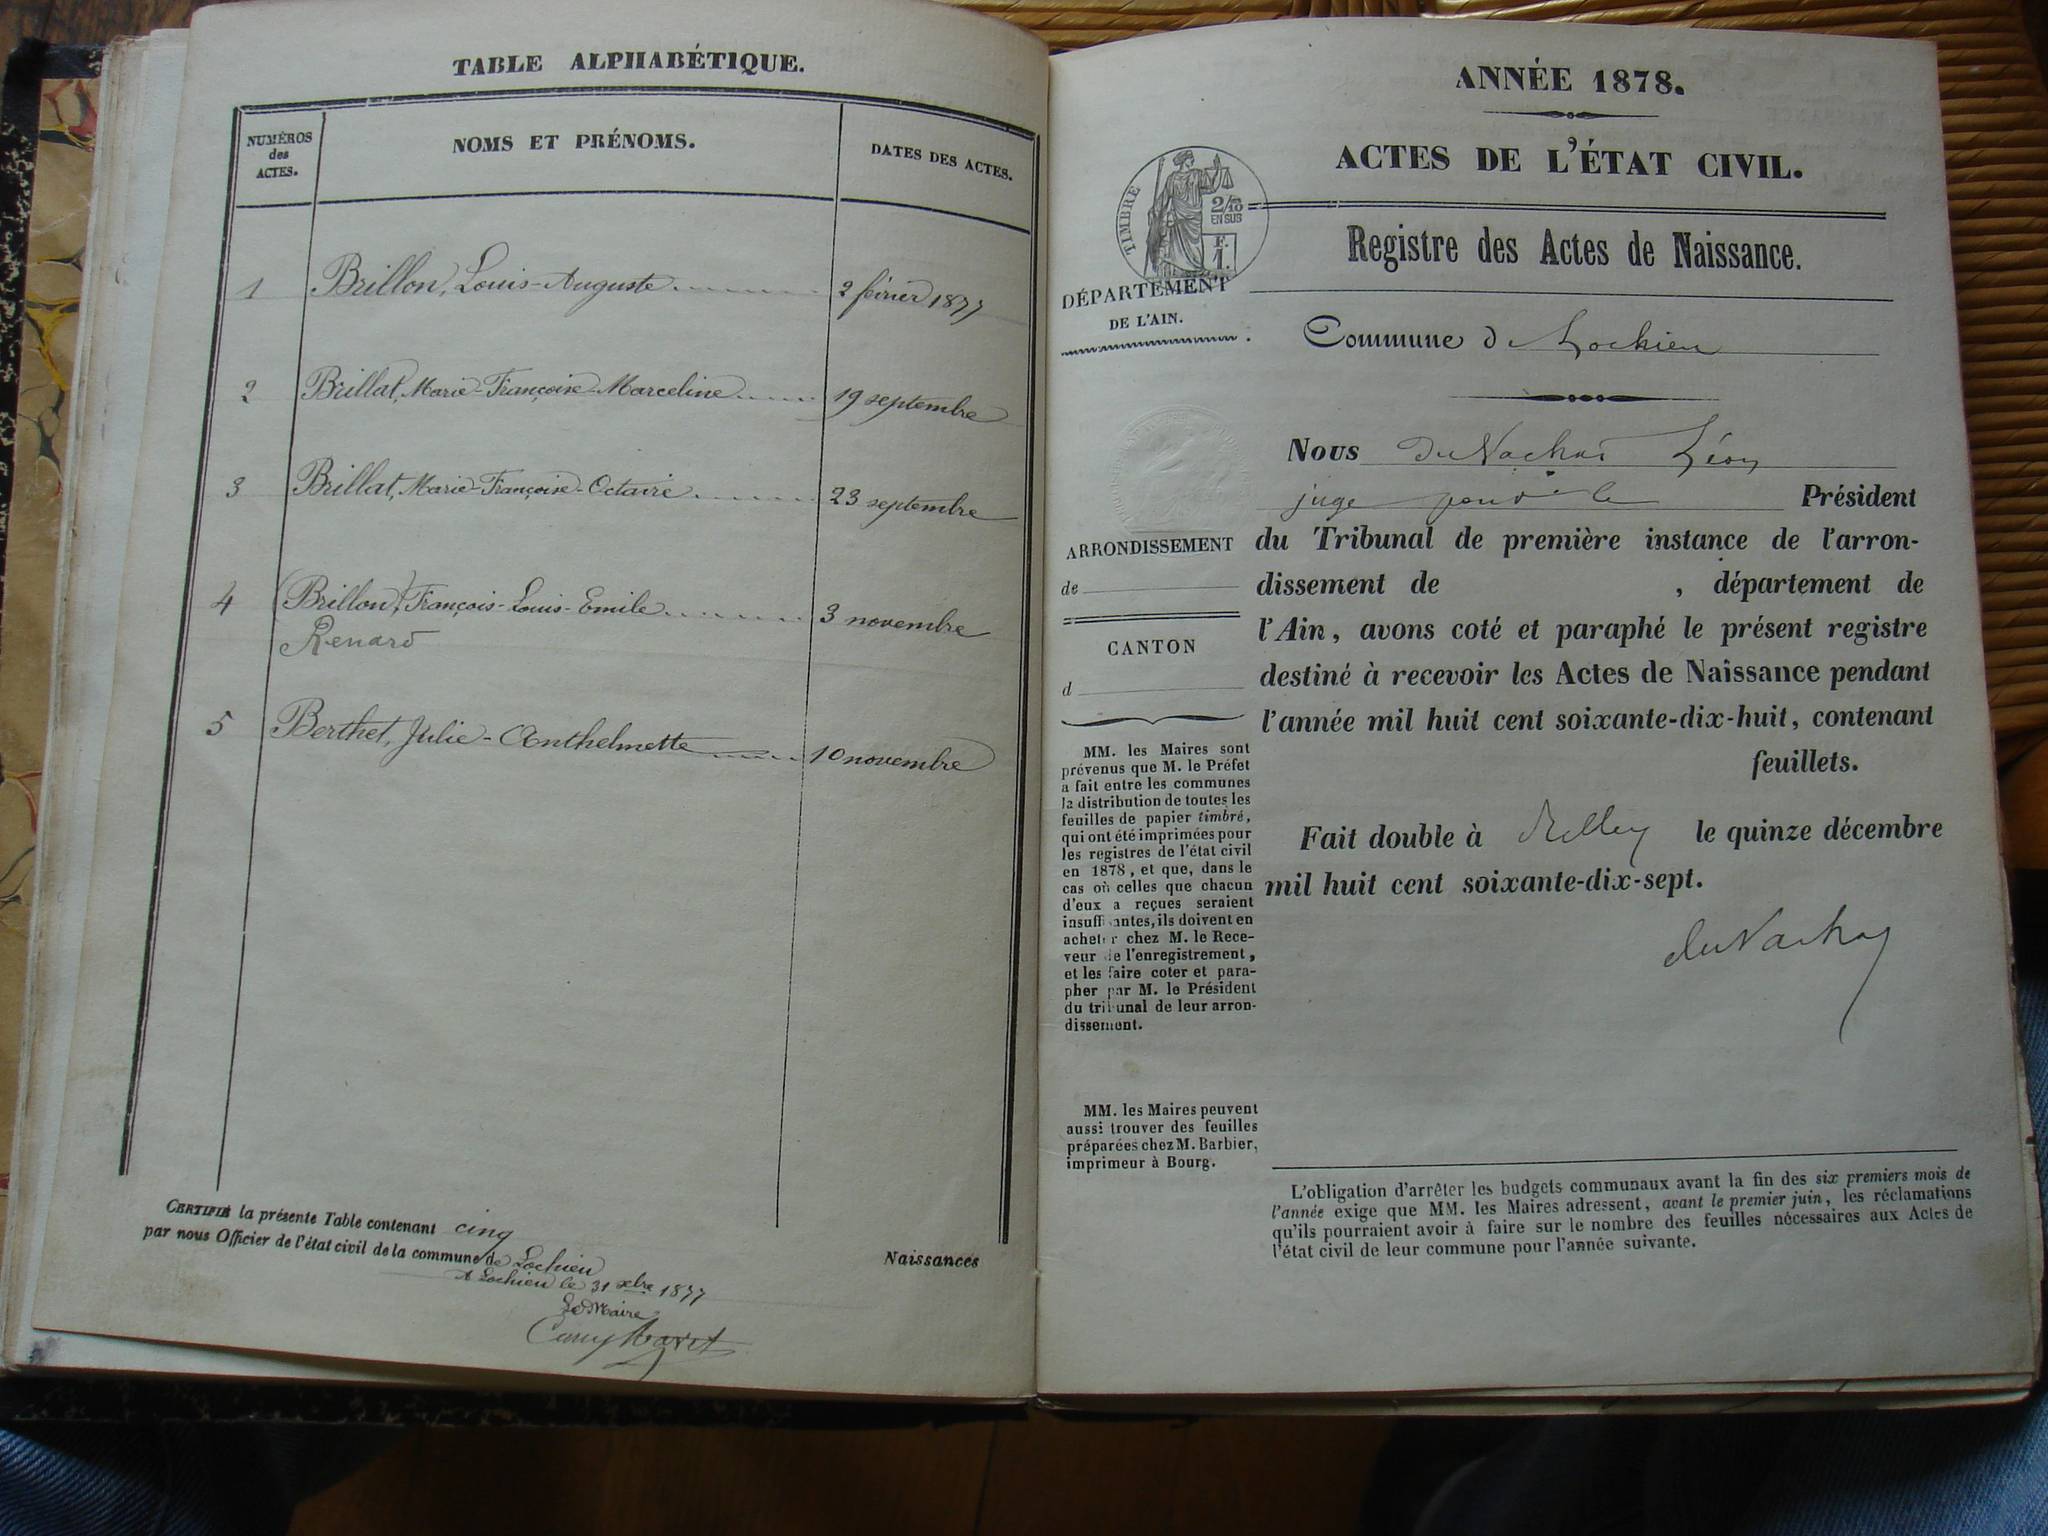 TABLE ALPHABÉTIQUE.
NUMÉROS
des
ACTES.
NOMS ET PRÉNOMS.
DATES DES ACTES.
1 Brillon, Louis-Auguste 2 février 1877
2 Brillat, Marie-Françoise-Marceline 19 septembre
3 Brillat, Marie-Françoise-Octavie 23 septembre
4 (Brillon) François-Louis-Emile 3 novembre
Renard
5 Berthet, Julie-Anthelmette 10 novembre
CERTIFIÉ la présente Table contenant cinq
Naissances
par nous Officier de l'état civil de la commune de Lochieu
A Lochieu le 31 xbre 1877
Le Maire
ANNÉE 1878.
ACTES DE L'ÉTAT CIVIL.
TIMBRE
2/10
EN SUS
F.
1.
Registre des Actes de Naissance.
DÉPARTEMENT
DE L'AIN.
Commune de Lochieu
Nous du Nachat Léon
juge pour le Président
du Tribunal de première instance de l'arron-
dissement de , département de
l'Ain, avons coté et paraphé le présent registre
destiné à recevoir les Actes de Naissance pendant
l'année mil huit cent soixante-dix-huit, contenant
feuillets.
Fait double à Belley le quinze décembre
mil huit cent soixante-dix-sept.
ARRONDISSEMENT
de
CANTON
d
MM. les Maires sont
prévenus que M. le Préfet
a fait entre les communes
la distribution de toutes les
feuilles de papier timbré,
qui ont été imprimées pour
les registres de l'état civil
en 1878, et que, dans le
cas où celles que chacun
d'eux a reçues seraient
insuffisantes, ils doivent en
acheter chez M. le Rece-
veur de l'enregistrement,
et les faire coter et para-
pher par M. le Président
du tribunal de leur arron-
dissement.
MM. les Maires peuvent
aussi trouver des feuilles
préparées chez M. Barbier,
imprimeur à Bourg.
L'obligation d'arrêter les budgets communaux avant la fin des six premiers mois de
l'année exige que MM. les Maires adressent, avant le premier juin, les réclamations
qu'ils pourraient avoir à faire sur le nombre des feuilles nécessaires aux Actes de
l'état civil de leur commune pour l'année suivante.